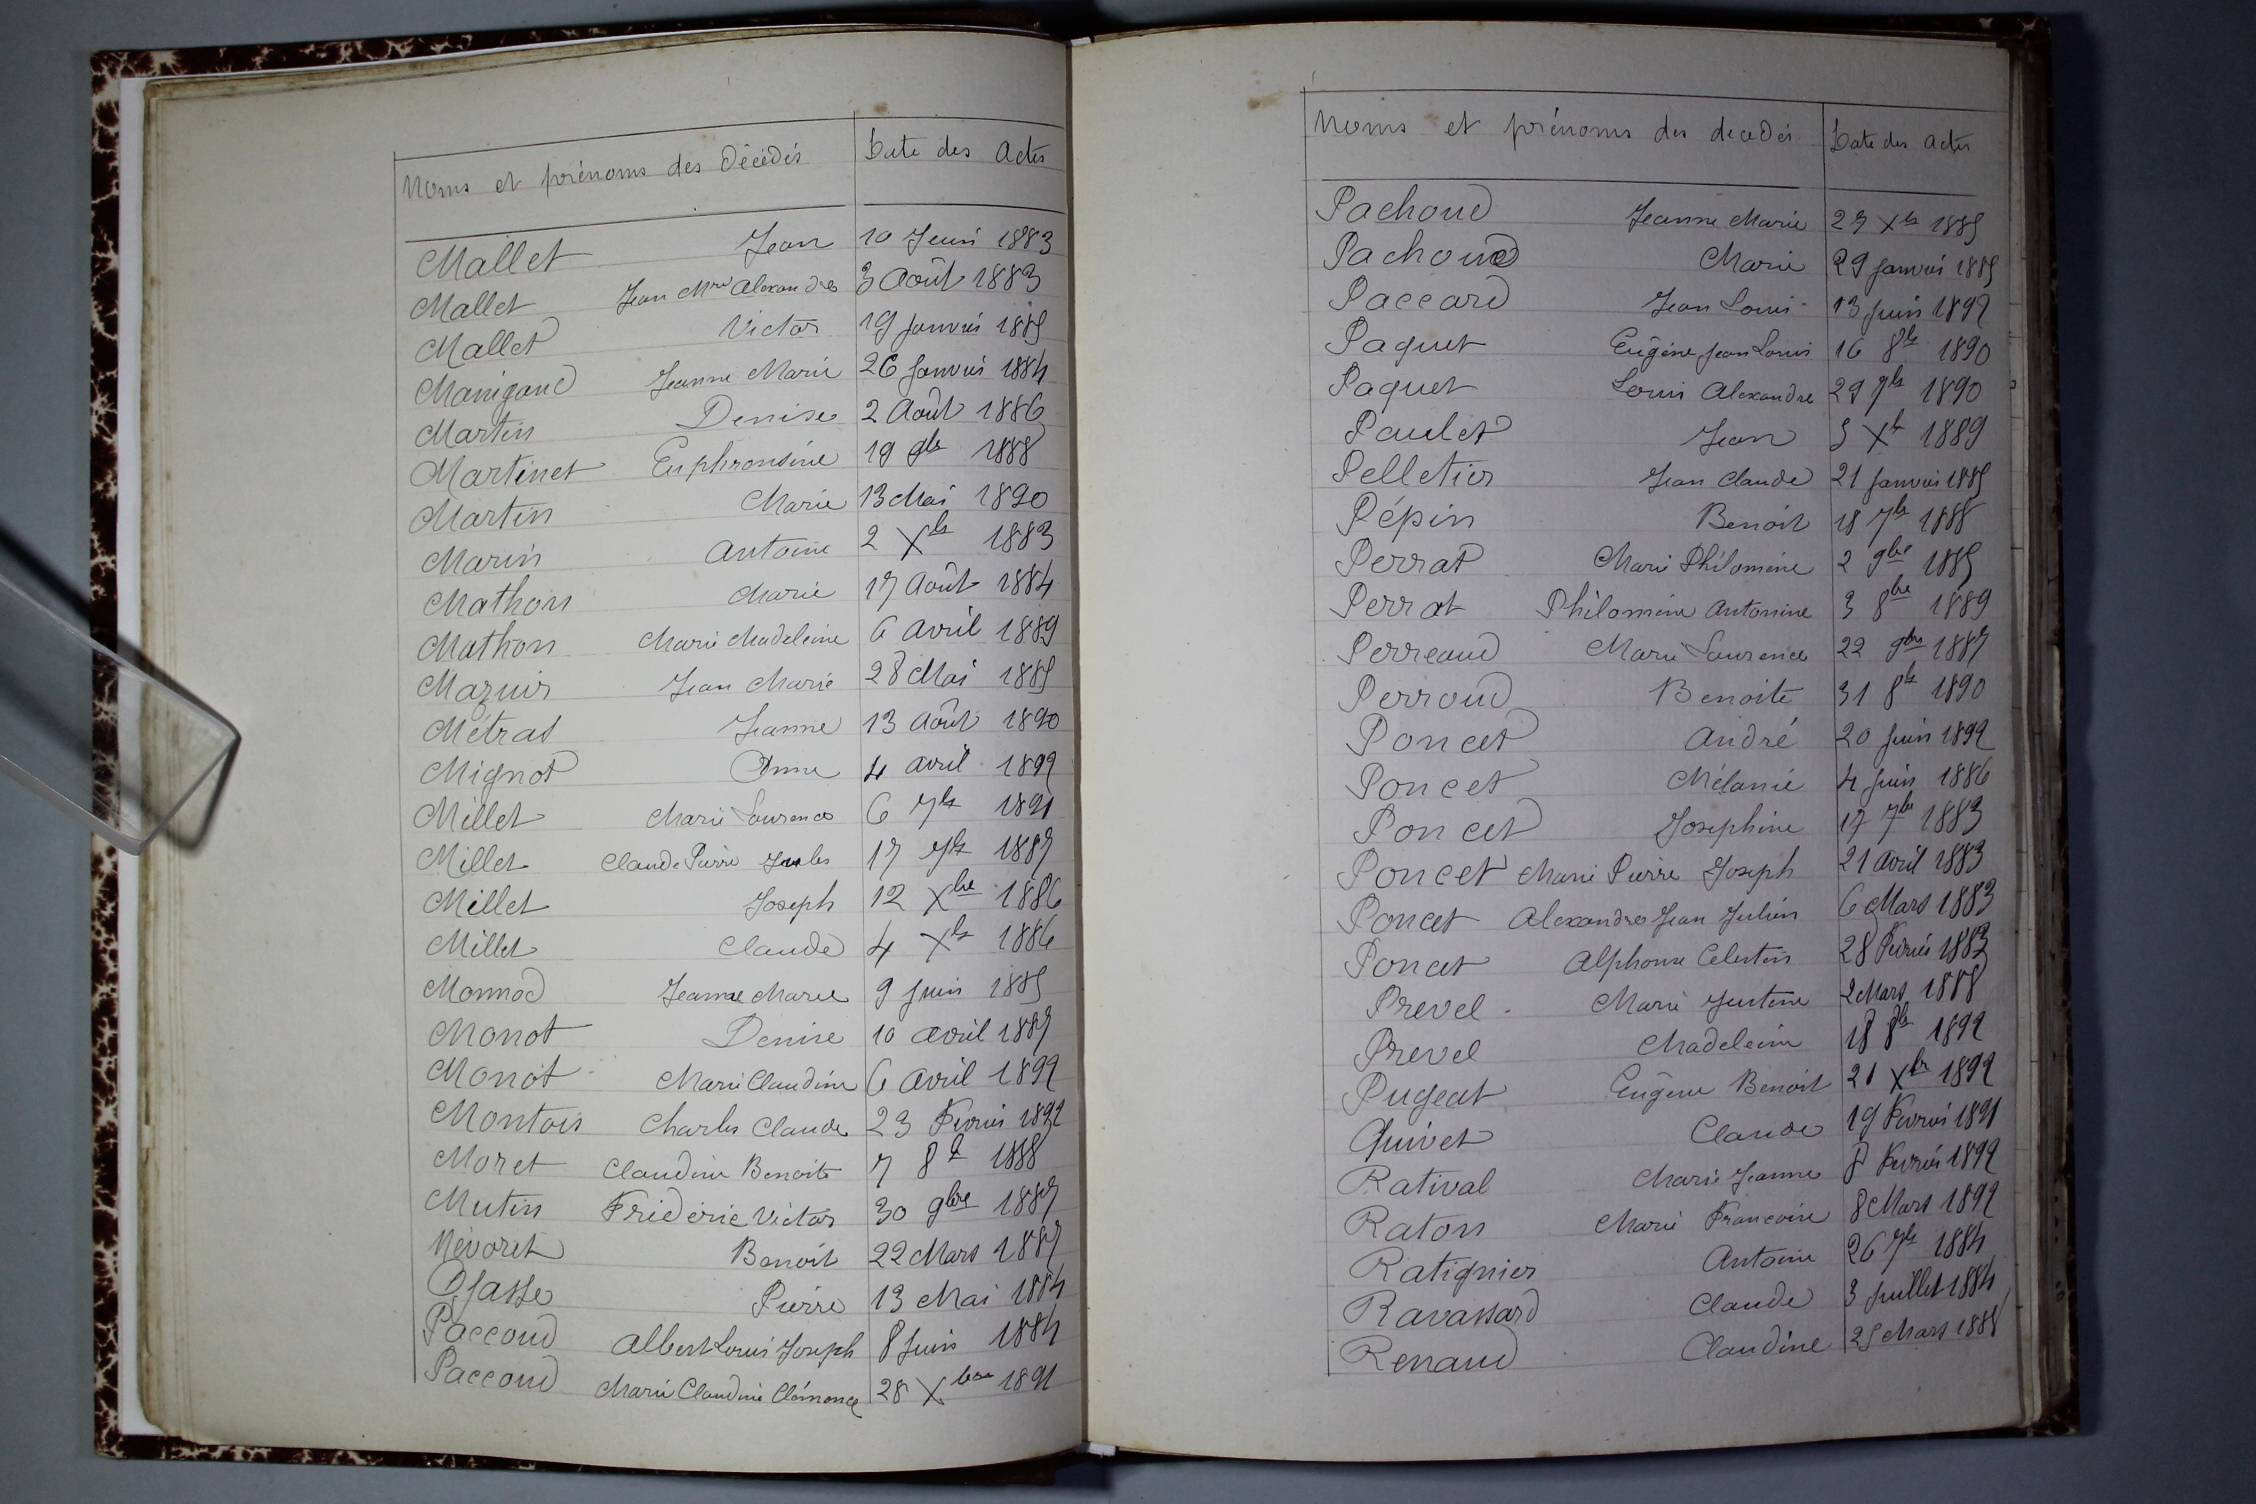 Noms et prénoms des Décédés Date des Actes
Mallet Jean 10 Juin 1883
Mallet Jean Mrie Alexandre 3 Août 1883
Mallet Victor 19 Janvier 1885
Manigaud Jeanne Marie 26 Janvier 1884
Martin Denise 2 Août 1886
Martinet Euphronsine 19 9bre 1888
Martin Marie 13 Mai 1890
Marin Antoine 2 Xbre 1883
Mathon Marie 17 Août 1884
Mathon Marie Madeleine 6 Avril 1889
Mazuir Jean Marie 28 Mai 1885
Métrat Jeanne 13 Août 1890
Mignot Anne 4 avril 1892
Millet Marie Laurence 6 7bre 1891
Millet Claude Pierre Jules 17 7bre 1887
Millet Joseph 12 Xbre 1886
Millet Claude 4 Xbre 1886
Monnod Jeanne Marie 9 Juin 1885
Monot Denise 10 avril 1887
Monot Marie Claudine 6 Avril 1892
Montoir Charles Claude 23 Fevrier 1892
Moret Claudine Benoite 7 8b 1888
Mutin Fridéric Victor 30 9bre 1887
Névoret Benoit 22 Mars 1887
Pierre 13 Mai 1884
Paccoud Albert Louis Joseph 8 Juin 1884
Paccoud Marie Claudine Clémence 28 Xbre 1891
Noms et prénoms des decedés Date des actes
Pachoud Jeanne Marie 27 Xbre 1885
Pachoud Marie 29 Janvier 1885
Paccard Jean Louis 13 Juin 1892
Paquet Eugène Jean Louis 16 8bre 1890
Paquet Louis Alexandre 29 7bre 1890
Paulet Jean 3 Xb 1889
Pelletier Jean Claude 21 Janvier 1885
Pépin Benoit 18 7bre 1888
Perrat Marie Philomène 2 9bre 1885
Perrat Philomène Antonine 3 8bre 1889
Perreaud Marie Laurence 22 9bre 1887
Perroud Benoite 31 8bre 1890
Poncet André 20 Juin 1892
Poncet Mélanie 4 Juin 1886
Poncet Josephine 17 7bre 1883
Poncet Marie Pierre Joseph 21 Avril 1883
Poncet Alexandre Jean Julien 6 Mars 1883
Poncet Alphonse Celestin 28 Fevrier 1883
Prevel Marie Justine 2 Mars 1888
Prevel Madeleine 18 8bre 1892
Pugeat Eugène Benoit 21 Xbre 1892
Quivet Claude 19 Fevrier 1891
Ratival Marie Jeanne 8 Fevrier 1892
Raton Marie Francoise 8 Mars 1892
Ratignier Antoine 26 7bre 1884
Ravassard Claude 3 Juillet 1884
Renaud Claudine 25 Mars 1888